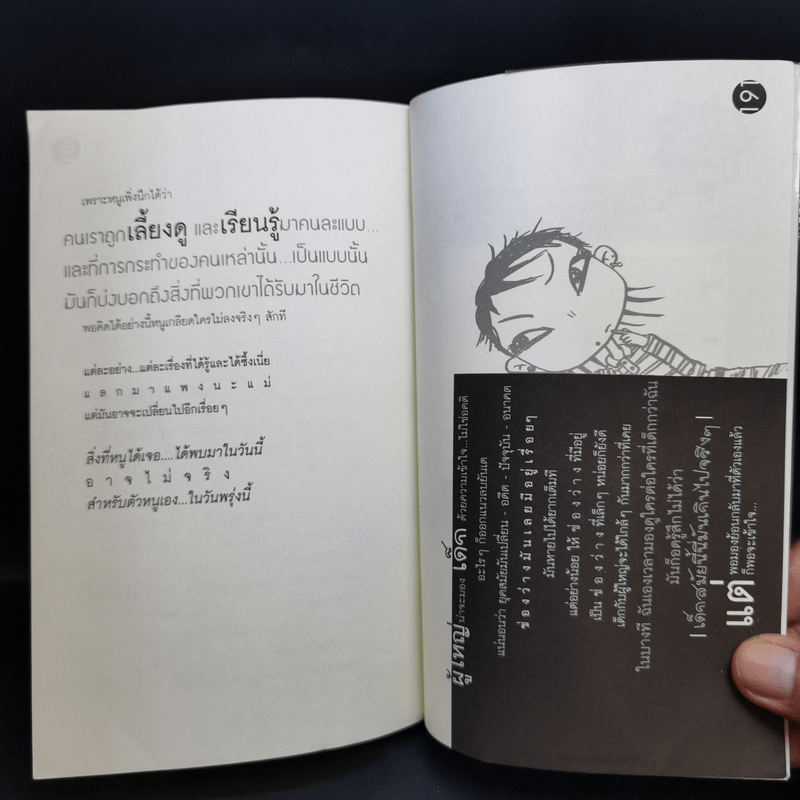 เพราะหนูเพิ่งนึกได้ว่า
คนเราถูกเลี้ยงดู และเรียนรู้มาคนละแบบ...
และที่การกระทำของคนเหล่านั้น...เป็นแบบนั้น
มันก็บ่งบอกถึงสิ่งที่พวกเขาได้รับมาในชีวิต
พอคิดได้อย่างนี้หนูเกลียดใครไม่ลงจริงๆ สักที
แต่ละอย่าง...แต่ละเรื่องที่ได้รู้และได้ซึ้งเนี่ย
แ ล ก ม า แ พ ง น ะ แ ม่
แต่มันอาจจะเปลี่ยนไปอีกเรื่อยๆ
สิ่งที่หนูได้เจอ....ได้พบมาในวันนี้
อ า จ ไ ม่ จ ริ ง
สำหรับตัวหนูเอง...ในวันพรุ่งนี้
191
ผู้ใหญ่น่าจะมอง เด็ก ด้วยความเข้าใจ...ไม่ใช่อคติ
อะไรๆ ก็ออกแนวลบยันเต
แน่นอนว่า ยุคสมัยมันเปลี่ยน - อดีต - ปัจจุบัน - อนาคต
ช่ อ ง ว่ า ง มั น เ ล ย มี อ ยู่ เ รื่ อ ย ๆ
มันหายไปได้ยากเต็มที
แต่อย่างน้อย ให้ ช่ อ ง ว่ า ง ที่มีอยู่
เป็น ช่ อ ง ว่ า ง ที่เล็กๆ หน่อยก็ยังดี
เด็กกับผู้ใหญ่จะได้ใกล้ๆ กันมากกว่าที่เคย
ในบางที ฉันเองเวลามองดูใครต่อใครที่เด็กกว่าฉัน
มันก็อดรู้สึกไม่ได้ว่า
|เด็กสมัยนี้นี่มันเกินไปจริงๆ|
แต่ พอมองย้อนกลับมาที่ตัวเองแล้ว
ก็พอจะเข้าใจ...